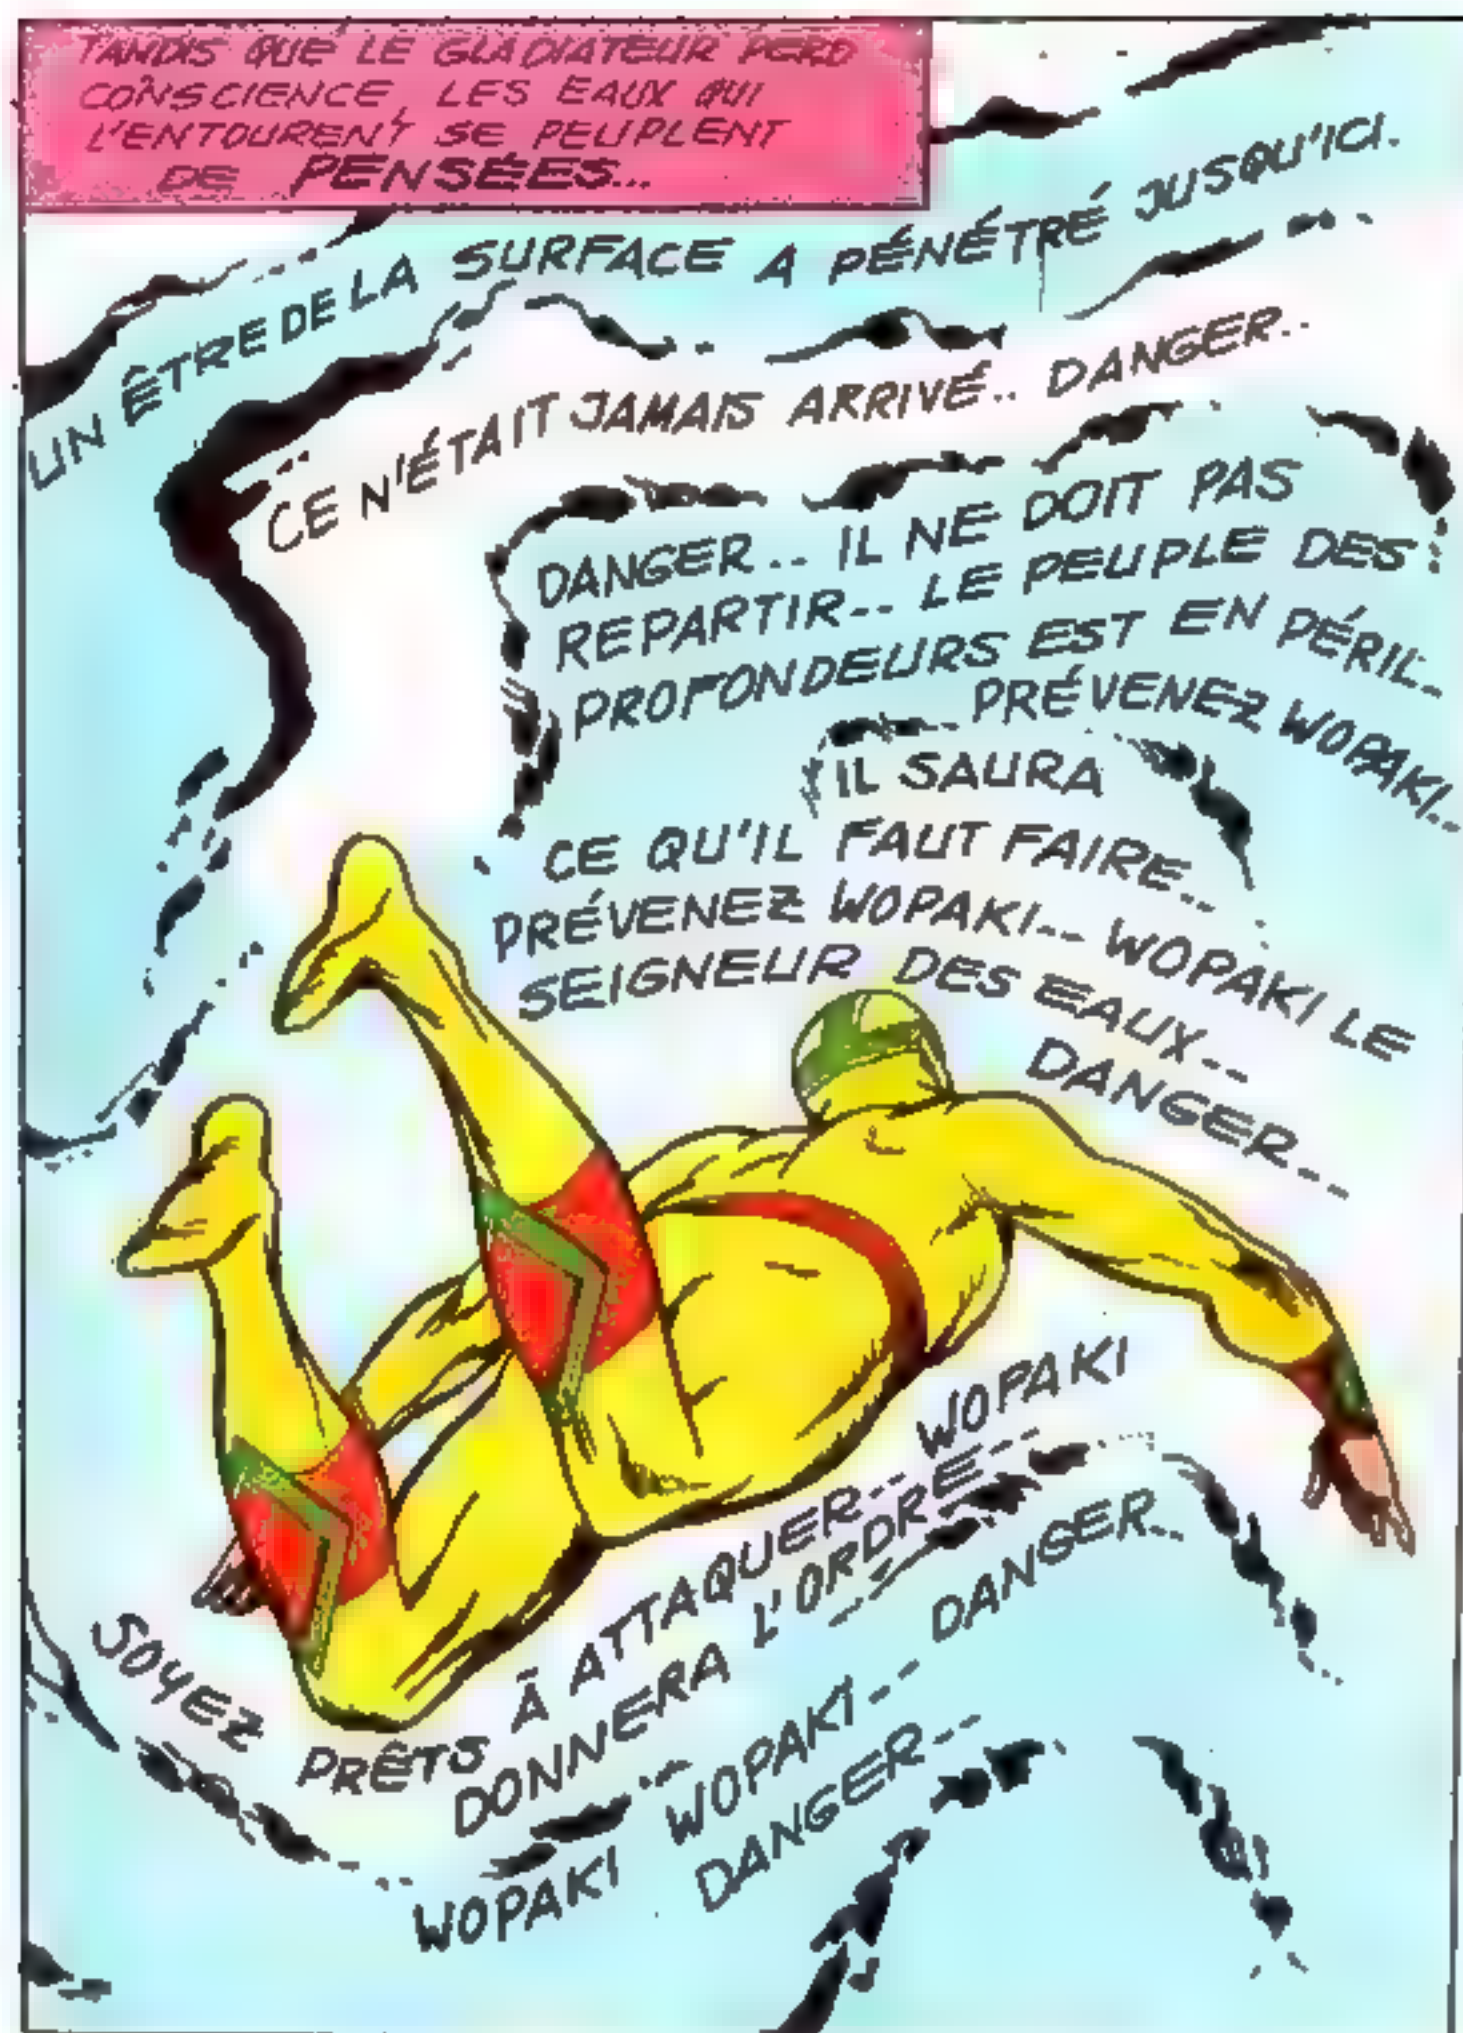 TANDIS QUE LE GLADIATEUR PERD
CONSCIENCE, LES EAUX QUI
L'ENTOURENT SE PEUPLENT
DE PENSÉES...
UN ÊTRE DE LA SURFACE A PÉNÉTRÉ JUSQU'ICI.
CE N'ÉTAIT JAMAIS ARRIVÉ.. DANGER..
DANGER.. IL NE DOIT PAS
REPARTIR-- LE PEUPLE DES
PROFONDEURS EST EN PÉRIL--
PRÉVENEZ WOPAKI--
IL SAURA
CE QU'IL FAUT FAIRE--
PRÉVENEZ WOPAKI-- WOPAKI LE
SEIGNEUR DES EAUX--
DANGER--
SOYEZ PRÊTS À ATTAQUER-- WOPAKI
DONNERA L'ORDRE--
WOPAKI WOPAKI-- DANGER--
DANGER--